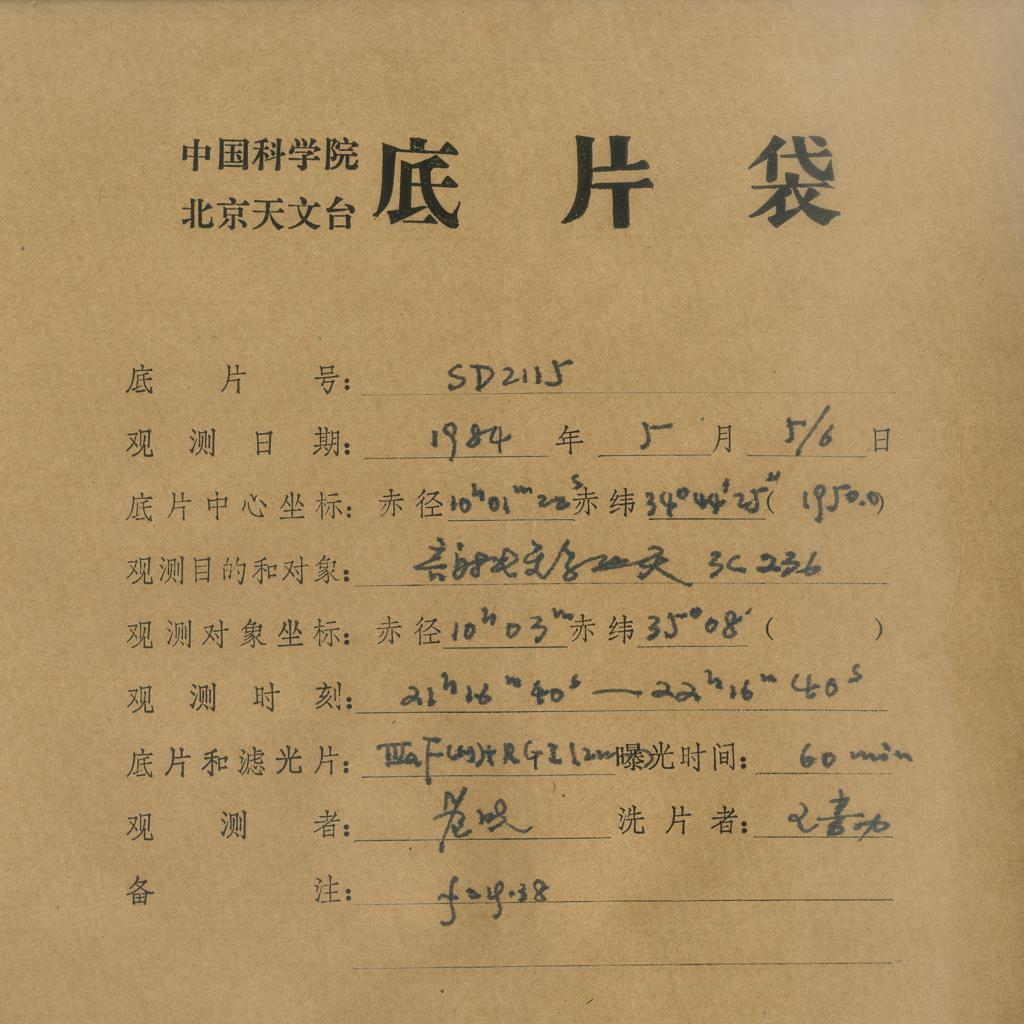 中国科学院
北京天文台
底片袋
底片号: SD2115
观测日期: 1984 年 5 月 5/6 日
底片中心坐标: 赤径 10h01m22s 赤纬 34°44′25″ (1950.0)
观测目的和对象: 3C 236
观测对象坐标: 赤径 10h03m 赤纬 35°08′ ( )
观测时刻: 21h16m40s — 22h16m40s
底片和滤光片: IIIaF 曝光时间: 60 min
观测者: 洗片者:
备注: f=4.38